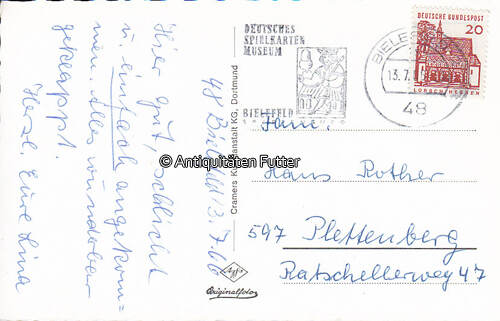 48 Bielefeld 13.7.66
Hier gut, schlicht
u. einfach angekom=
men. Alles wunderbar
geklappt.
Herzl. Eure Lina
Cramers Kunstanstalt KG, Dortmund
Agfa
Originalfoto
DEUTSCHES
SPIELKARTEN
MUSEUM
BIELEFELD
BIELEFELD
13.7.
48
DEUTSCHE BUNDESPOST
20
LORSCH/HESSEN
Fam.
Hans Rother
597 Plettenberg
Ratschellerweg 47
© Antiquitäten Futter